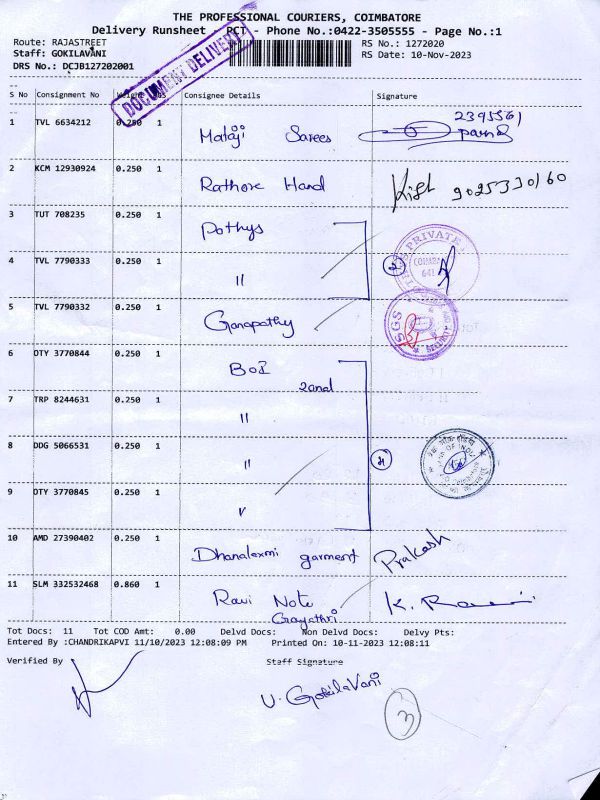 THE PROFESSIONAL COURIERS, COIMBATORE
Delivery Runsheet - PCT - Phone No.:0422-3505555 - Page No.:1
Route: RAJASTREET RS No.: 1272020
Staff: GOKILAVANI RS Date: 10-Nov-2023
DRS No.: DCJB127202001
DOCUMENT DELIVERY
S No Consignment No Weight Pcs Consignee Details Signature
1 TVL 6634212 0.250 1 Mataji Sarees 2395561
2 KCM 12930924 0.250 1 Rathore Hand 9025330160
3 TUT 708235 0.250 1 Pothys
4 TVL 7790333 0.250 1 "
PRIVATE
5 TVL 7790332 0.250 1 Ganapathy
SGS
6 DTY 3770844 0.250 1 BOI
2and
7 TRP 8244631 0.250 1 "
8 DDG 5066531 0.250 1 "
9 DTY 3770845 0.250 1 "
10 AMD 27390402 0.250 1 Dhanalaxmi garment Prakash
11 SLM 332532468 0.860 1 Ravi Note K. Ravi
Gayathri
Tot Docs: 11 Tot COD Amt: 0.00 Delvd Docs: Non Delvd Docs: Delvy Pts:
Entered By :CHANDRIKAPVI 11/10/2023 12:08:09 PM Printed On: 10-11-2023 12:08:11
Verified By Staff Signature
V. GokilaVani
3